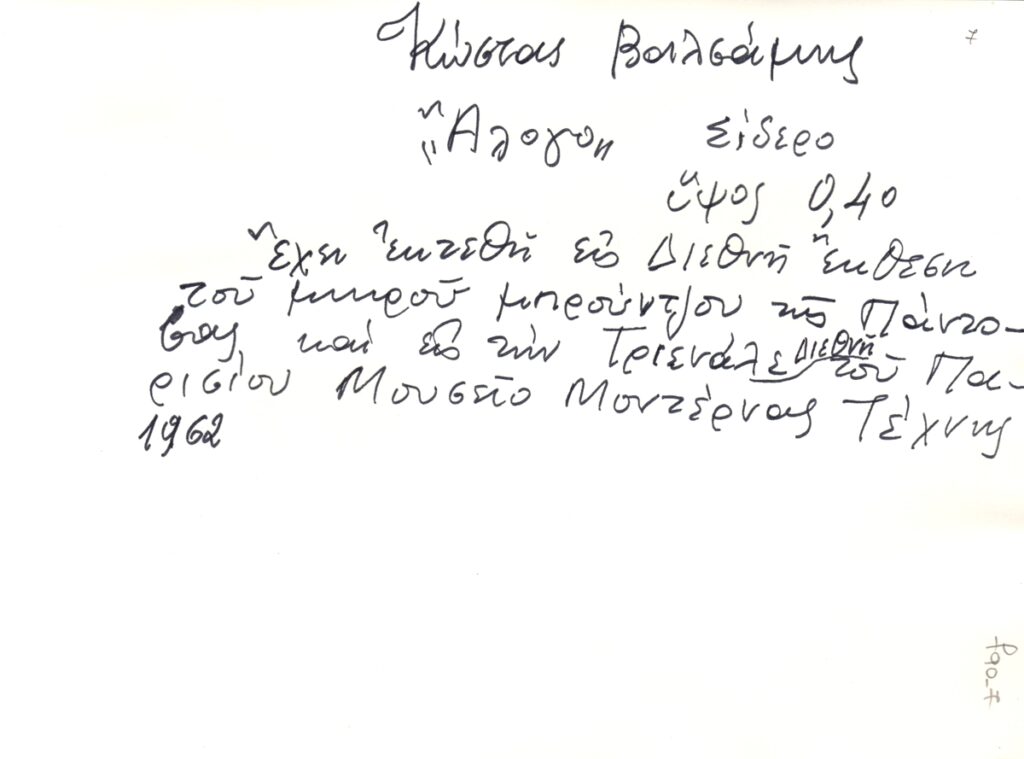 7
Κώστας Βαλσάμης
"Ἄλογο" σίδερο
ὕψος 0,40
Ἔχει ἐκτεθῆ εἰς Διεθνῆ ἔκθεση
τοῦ μικροῦ μπρούντζου τῆς Πάντο-
βας, καί εἰς τήν Τριενάλε Διεθνῆ τοῦ Πα-
ρισίου Μουσεῖο Μοντέρνας Τέχνης
1962
φ90_7